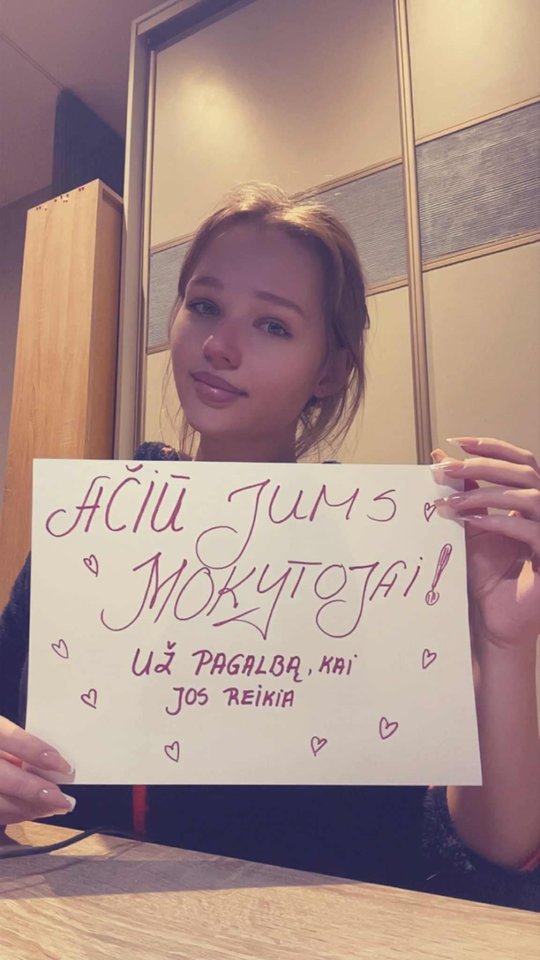 AČIŪ JUMS
MOKYTOJAI!
UŽ PAGALBĄ, KAI
JOS REIKIA